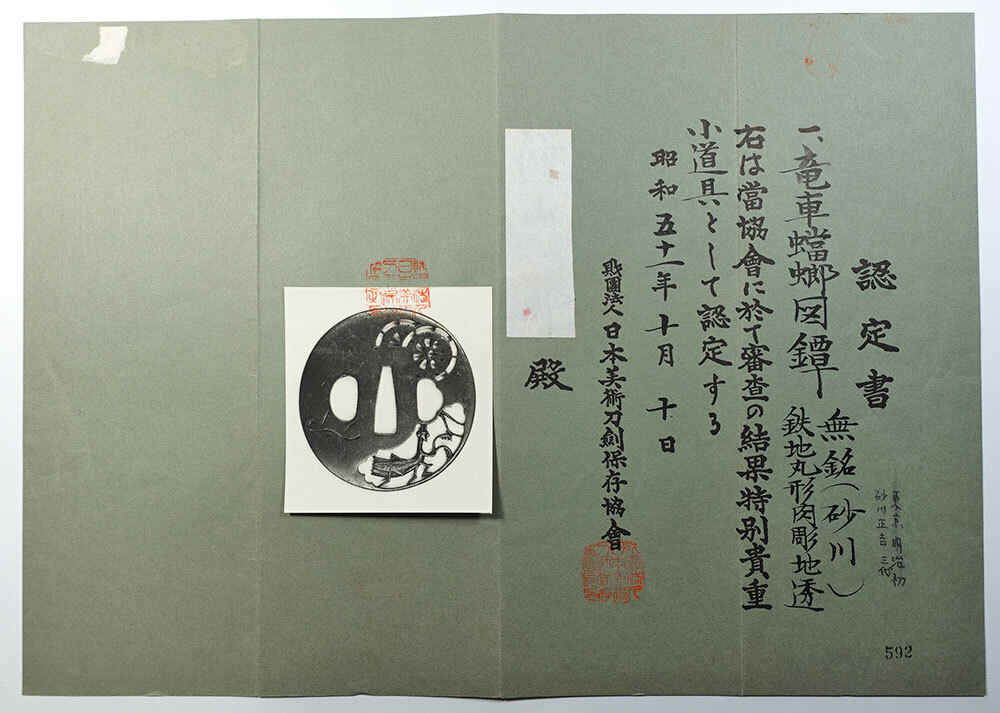 認定書
一、竜車蟷螂図鐔 無銘(砂川)
鉄地丸形肉彫地透
右は當協會に於て審査の結果特別貴重
小道具として認定する
昭和五十一年十月十日
財團法人日本美術刀劍保存協會
殿
東京 明治初
砂川正吉 三代
592